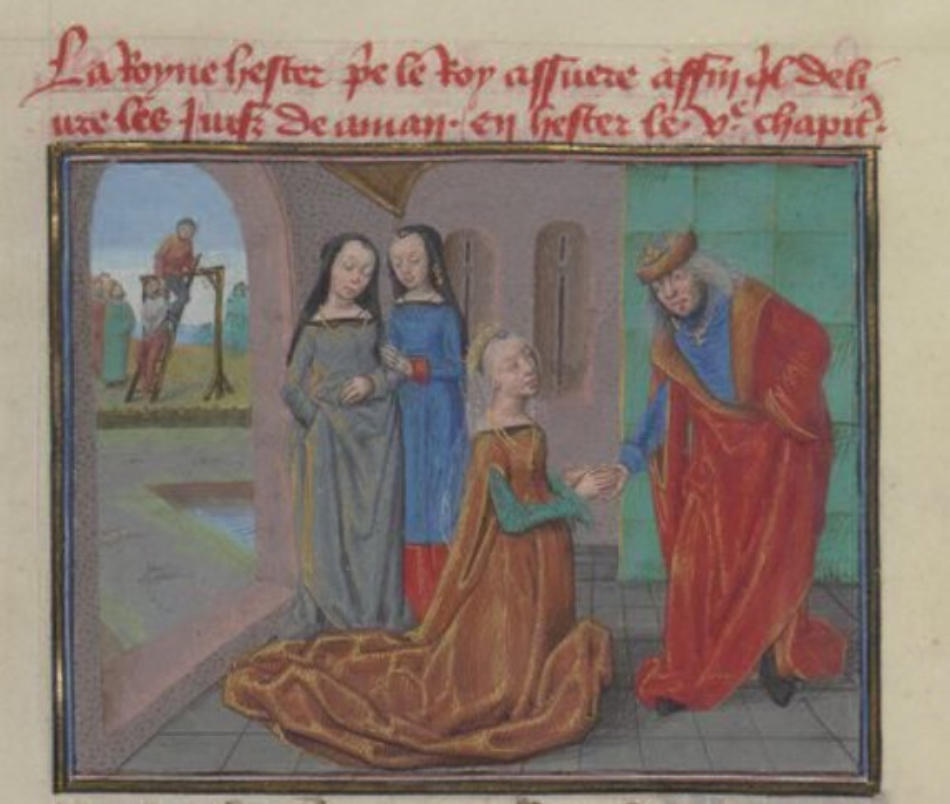 La Royne hester p̄e le Roy assuere affin q̄l deli
ure les Juifz de aman· en hester le· v.ᵉ chapit̄·